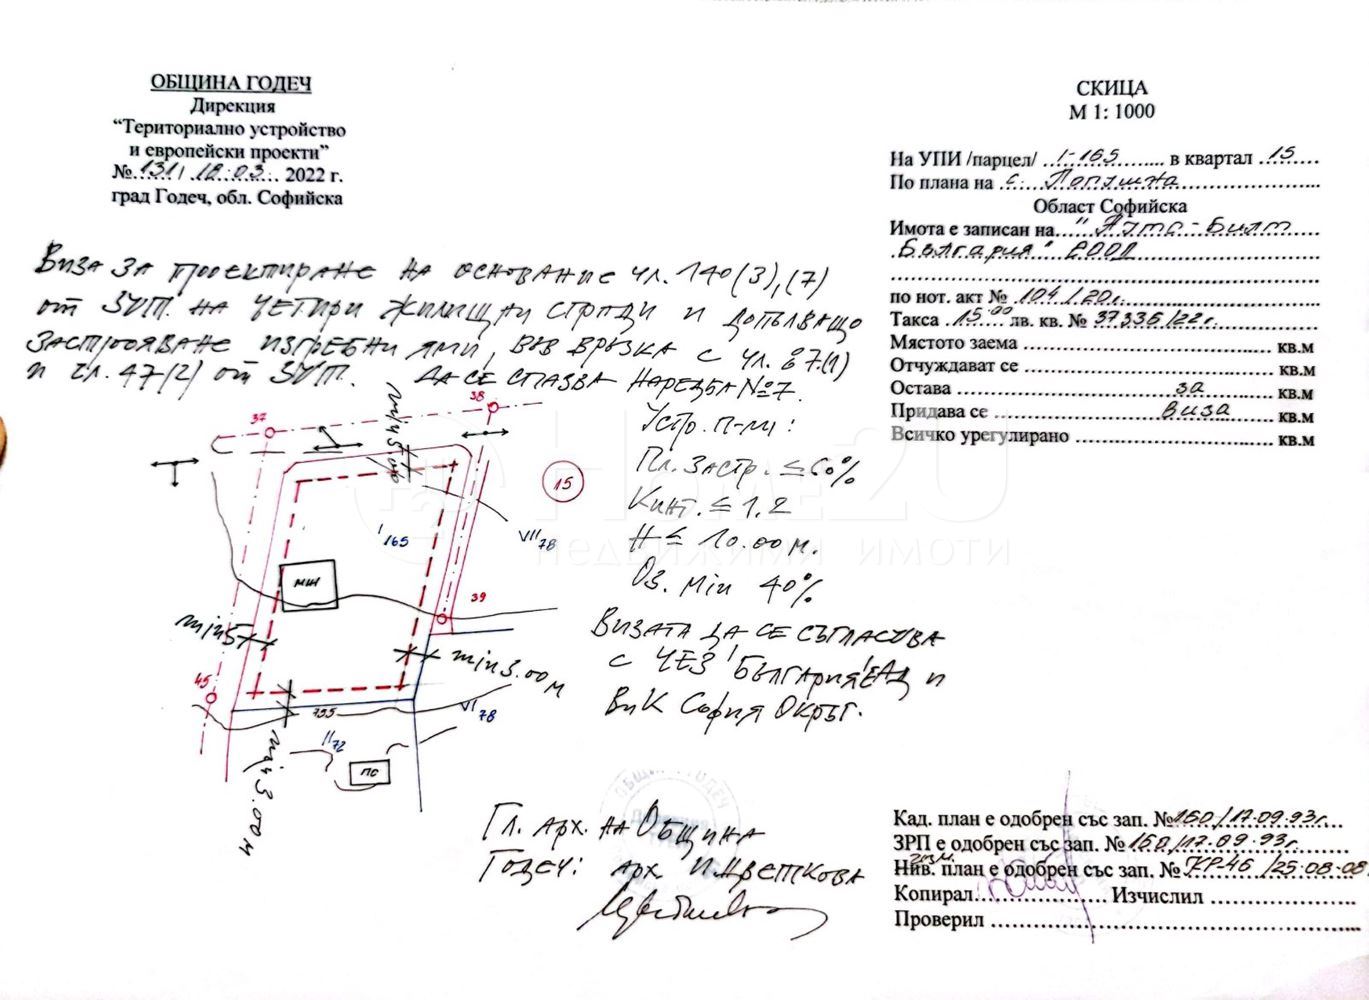 ОБЩИНА ГОДЕЧ
Дирекция
“Териториално устройство
и европейски проекти”
№ 131, 18.03. 2022 г.
град Годеч, обл. Софийска
СКИЦА
М 1: 1000
На УПИ /парцел/ I-165 в квартал 15
По плана на с.
Област Софийска
Имота е записан на "Алта-Билт
България" ЕООД
по нот. акт № 104/20г.
Такса 15.00 лв. кв. № 37336/22г.
Мястото заема кв.м
Отчуждават се кв.м
Остава за кв.м
Придава се виза кв.м
Всичко урегулирано кв.м
Виза за проектиране на основание чл. 140(3),(7)
от ЗУТ. на четири жилищни сгради и допълващо
застрояване изгребни ями, във връзка с чл. 87.(1)
и чл. 47(2) от ЗУТ. Да се спазва Наредба №7.
Устр. п-ли:
Пл. застр. ≤ 60%
Кинт. ≤ 1.2
H ≤ 10.00 м.
Оз. min 40%
Визата да се съгласува
с ЧЕЗ България ЕАД и
ВиК София Окръг.
37
38
min 5.00
15
I 165
VII 78
МЖ
39
min 5
min 3.00 м
45
755
VI 78
II 72
ПС
min 3.00 м
Home2U
недвижими имоти
Гл. арх. на Община
Годеч: арх И. Цветкова
ОБЩИНА ГОДЕЧ
Кад. план е одобрен със зап. №150/17.09.93г.
ЗРП е одобрен със зап. №150/17.09.93г.
Нив. план е одобрен със зап. № КР-46/25.08.08
Копирал Изчислил
Проверил